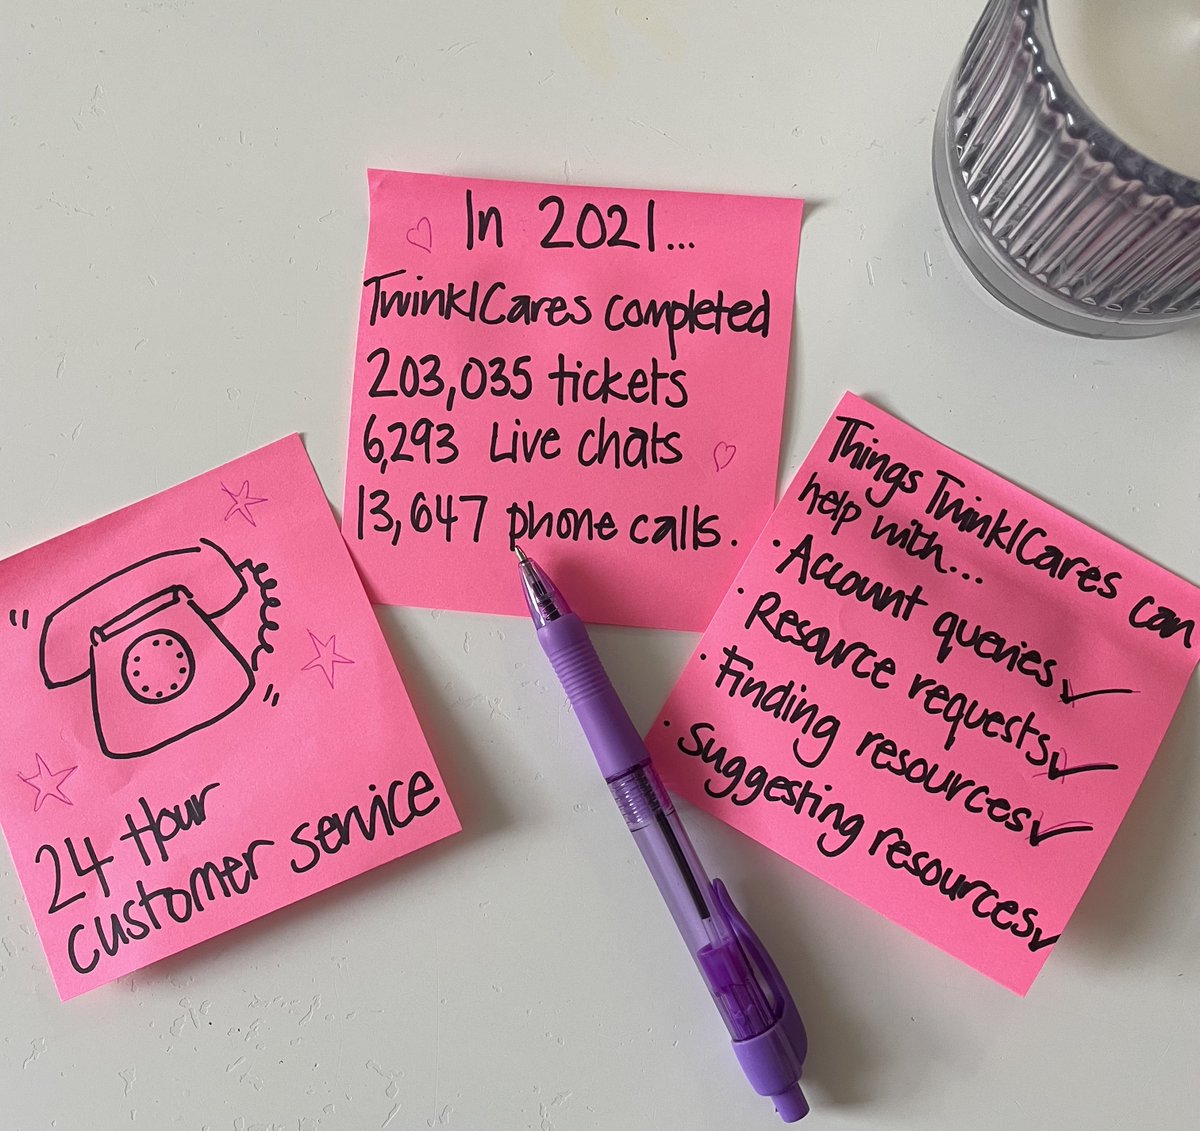 24 Hour
customer service
In 2021...
TwinklCares completed
203,035 tickets
6,293 Live chats
13,647 phone calls.
Things TwinklCares can
help with...
· Account queries ✓
· Resource requests ✓
· Finding resources ✓
· Suggesting resources ✓